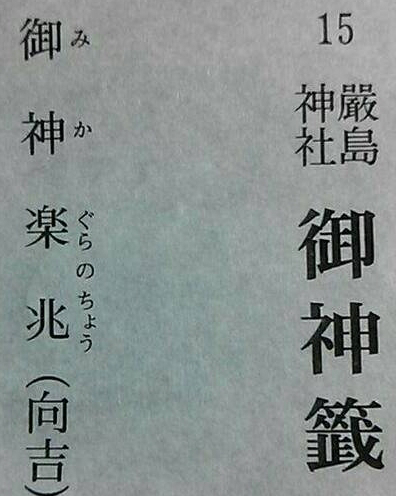 15
嚴島神社
御神籤
御神楽兆(向吉)
みかぐらのちょう